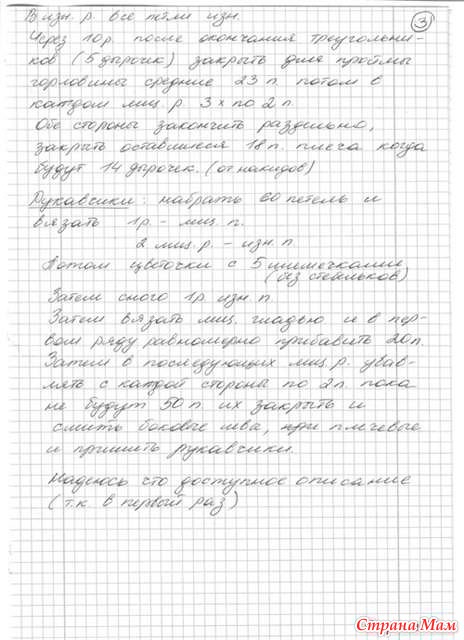 ③
В изн. р. все петли изн.
Через 10 р. после окончания треугольни-
ков (5 дырочек) закрыть для проймы
горловины средние 23 п. потом в
каждом лиц. р. 3 х по 2 п.
Обе стороны закончить раздельно,
закрыть оставшиеся 18 п. плеча когда
будут 14 дырочек. (от накидов)
Рукавчики: набрать 60 петель и
вязать 1 р. – лиц. п.
2 лиц. р. – изн. п.
Потом цветочки с 5 шишечками
(без стебельков)
Затем снова 1 р. изн. п.
Затем вязать лиц. гладью и в пер-
вом ряду равномерно прибавить 20 п.
Затем в последующих лиц. р. убав-
лять с каждой стороны по 2 п. пока
не будут 50 п. их закрыть и
сшить боковые швы, плечевые
и пришить рукавчики.
Надеюсь что доступное описание
(т.к. в первый раз)
Страна Мам